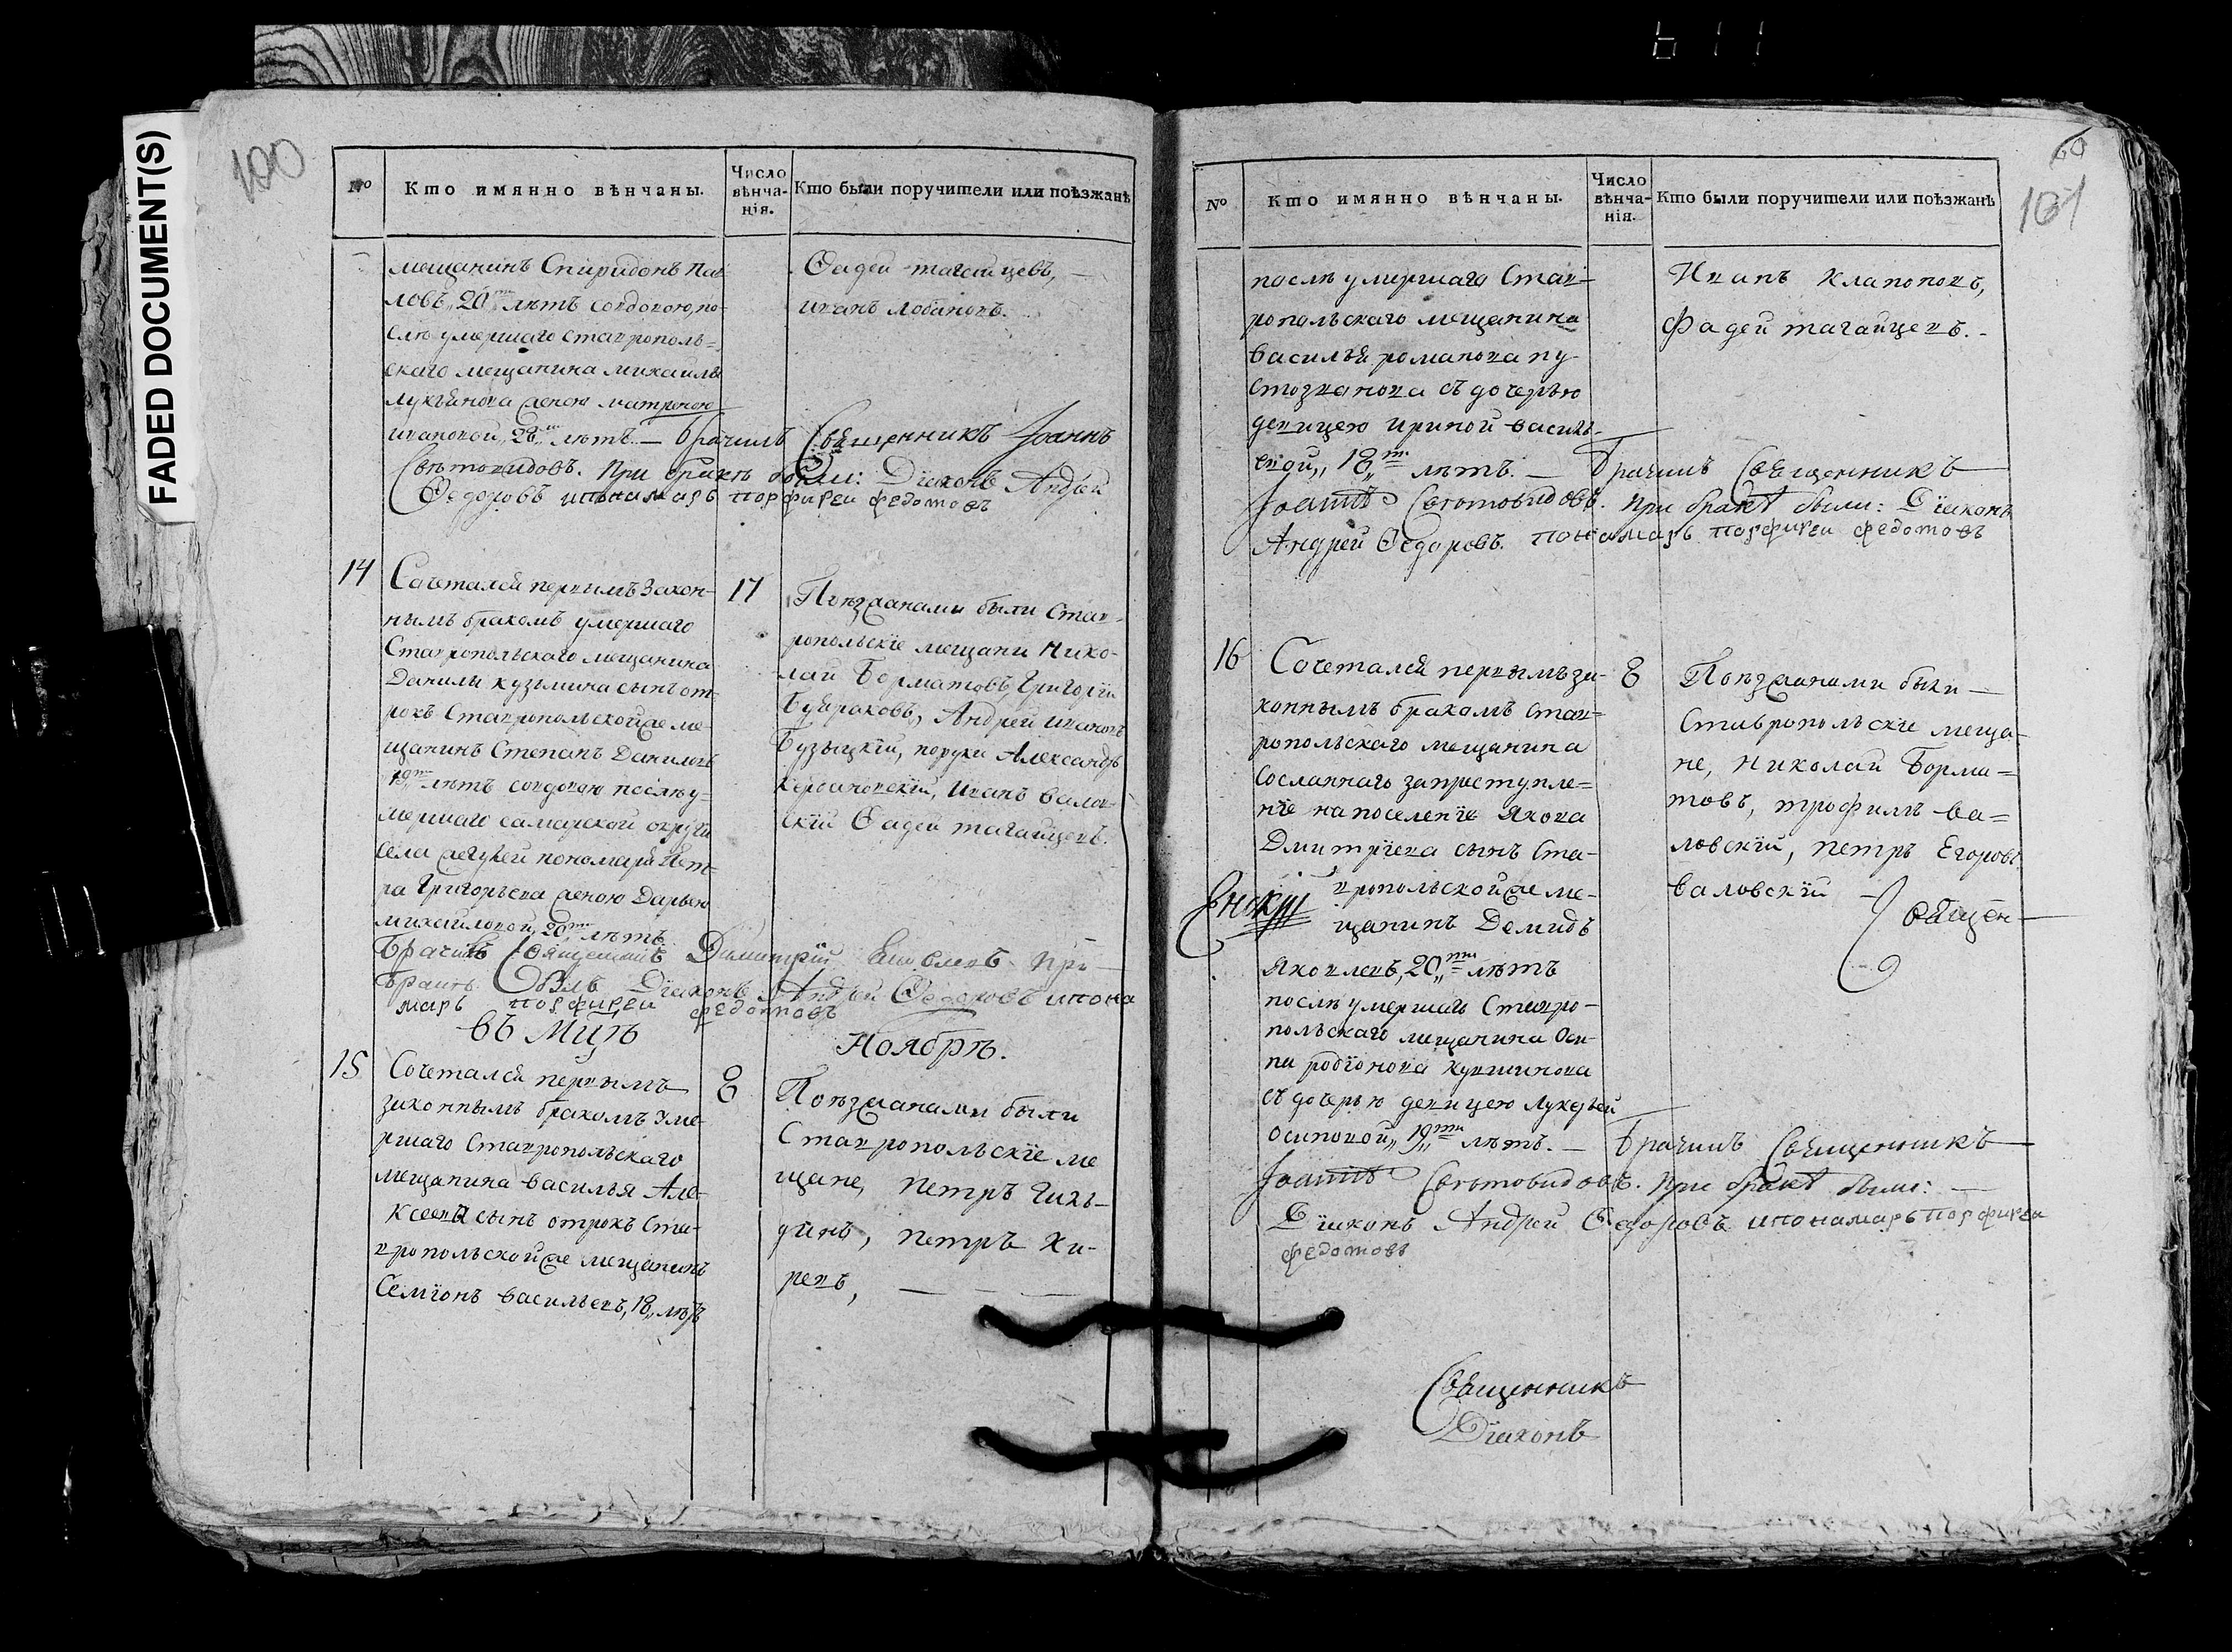 FADED DOCUMENT(S)
100
№
Кто имянно вѣнчаны.
Число вѣнча-нія.
Кто были поручители или поѣзжанѣ
мещанинъ Спиридонъ Пав-
ловъ, 20ти лѣтъ совдовою, по-
слѣ умершаго ставрополь-
скаго мещанина михаилы
лукьянова женою матроною
ивановой, 28 лѣтъ. — брачилъ Священникъ Іоаннъ
Свѣтовидовъ. При бракѣ были: Дїаконъ Андрей
Ѳедоровъ ипонамарь порфирей федотовъ
Ѳадей тагаицевъ,
иванъ лобановъ.
14
Сочетался первымъ закон-
нымъ бракомъ умершаго
Ставропольскаго мещанина
Данилы кузьмина сынъ от-
рокъ Ставропольской же ме-
щанинъ Степанъ Даниловъ
19ти лѣтъ совдовою послѣ у-
мершаго самарской округи
села пономаря Пет-
ра Григорьева женою Дарьею
михаиловой, 20ти лѣтъ
17
Поѣзжанами были Став-
ропольскїе мещани Нико-
лай Борматовъ, Григорїй
Буераковъ, Андрей ивановъ
Бузыцкїй, поруки Александръ
иванъ валов-
скїй Ѳадей тагаицевъ.
Брачилъ Священникъ Димитрїй При
бракѣ Былъ Дїаконъ Андрей Ѳедоровъ ипона
марь порфирей федотовъ
въ Мцѣ Ноябрѣ.
15
Сочетался первымъ
законнымъ бракомъ уме-
ршаго Ставропольскаго
мещанина василья Але-
ксеева сынъ отрокъ Ста-
вропольской же мещанинъ
Семїонъ васильевъ, 18 лѣтъ
8
Поѣзжанами были
Ставропольскїе ме
щане, петръ Чиль-
динъ, петръ Хи-
ревъ,
101
№
Кто имянно вѣнчаны.
Число вѣнча-нія.
Кто были поручители или поѣзжанѣ
послѣ умершаго Став-
ропольскаго мещанина
василья романова пу-
стозванова съ дочерью
девицею ириной василь-
евой, 18ть лѣтъ. — Брачилъ Священникъ
Іоаннъ Свѣтовидовъ. При бракѣ были: Дїаконъ
Андрей Ѳедоровъ. понамарь порфирей федотовъ
Иванъ Клапоповъ,
Фадей тагаицевъ.
16
Сочетался первымъ за-
коннымъ бракомъ став-
ропольскаго мещанина
сосланнаго запреступле-
нїе напоселенїе Якова
Дмитрїева сынъ Ста-
вропольской же ме-
щанинъ Демидъ
Яковлевъ, 20ти лѣтъ
послѣ умершаго Ставро-
польскаго мещанина Оси-
па родїонова кувшинова
съ дочерью девицею Лукерьей
осиповой, 19ти лѣтъ. — Брачилъ Священникъ
Іоаннъ Свѣтовидовъ. При бракѣ были:
Дїаконъ Андрей Ѳедоровъ ипонамарь порфирей
федотовъ
8
Поѣзжанами были
Ставропольскїе меща-
не, Николай Борма-
товъ, трофимъ ва-
ловскїй, петръ Егоровъ
валовскїй
Священ-
Священникъ
Дїаконъ